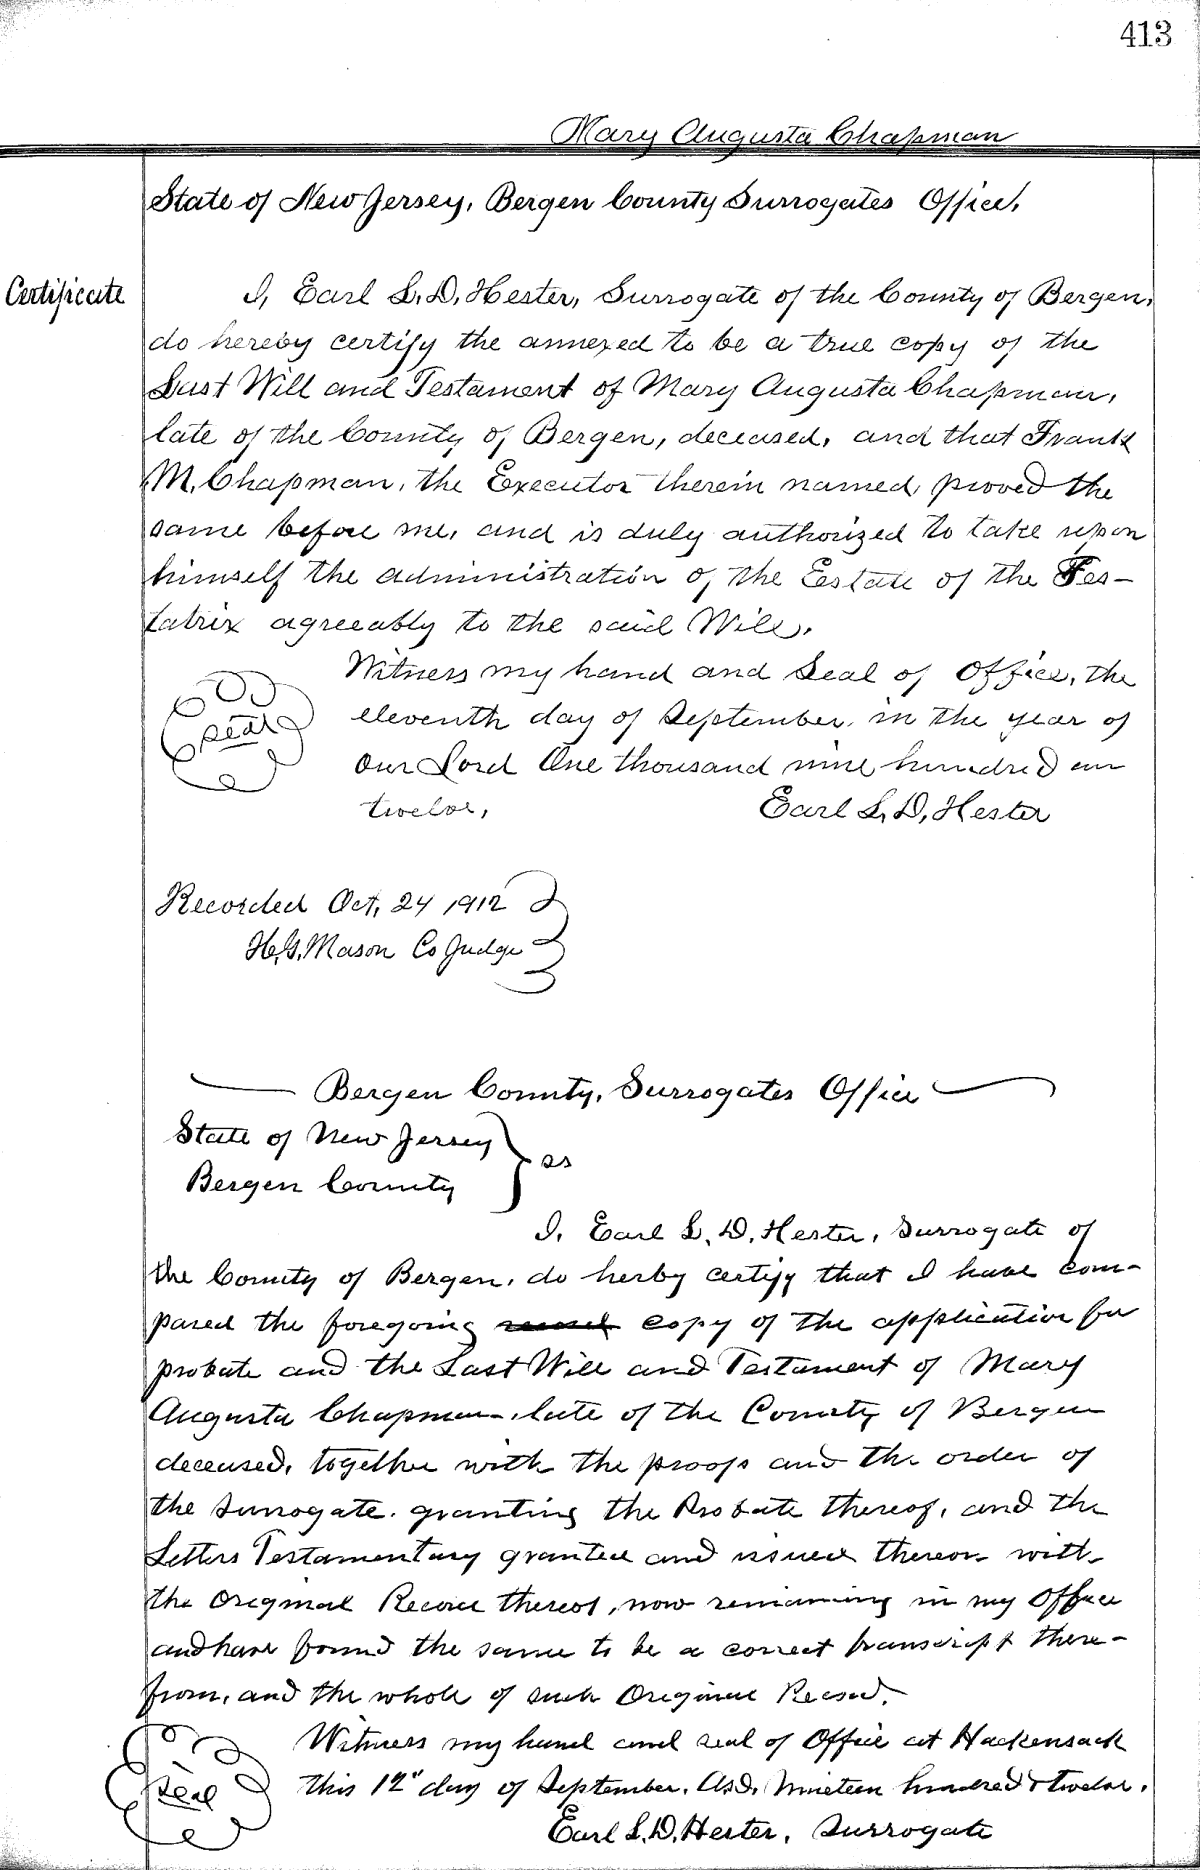 413
Mary Augusta Chapman
State of New Jersey, Bergen County Surrogates Office,
Certificate
I, Earl L. D. Hester, Surrogate of the County of Bergen,
do hereby certify the annexed to be a true copy of the
Last Will and Testament of Mary Augusta Chapman,
late of the County of Bergen, deceased, and that Frank
M. Chapman, the Executor therein named, proved the
same before me, and is duly authorized to take upon
himself the administration of the Estate of the Tes-
tatrix agreeably to the said Will.
Witness my hand and Seal of Office, the
Seal
eleventh day of September, in the year of
our Lord One thousand nine hundred an
twelve,
Earl L. D. Hester
Recorded Oct, 24 1912
H.G. Mason Co Judge
Bergen County, Surrogates Office
State of New Jersey
Bergen County
} ss
I, Earl L. D. Hester, Surrogate of
the County of Bergen, do herby certify that I have com-
pared the foregoing copy of the application for
probate and the Last Will and Testament of Mary
Augusta Chapman, late of the County of Bergen
deceased, together with the proofs and the order of
the Surrogate. granting the Probate thereof, and the
Letters Testamentary granted and issued thereon with
the Original Record thereof, now remaining in my Office
and have found the same to be a correct transcript there-
from, and the whole of such Original Record.
Witness my hand and seal of Office at Hackensack
Seal
this 12" day of September, A.D. Nineteen hundred & twelve.
Earl L. D. Hester, Surrogate